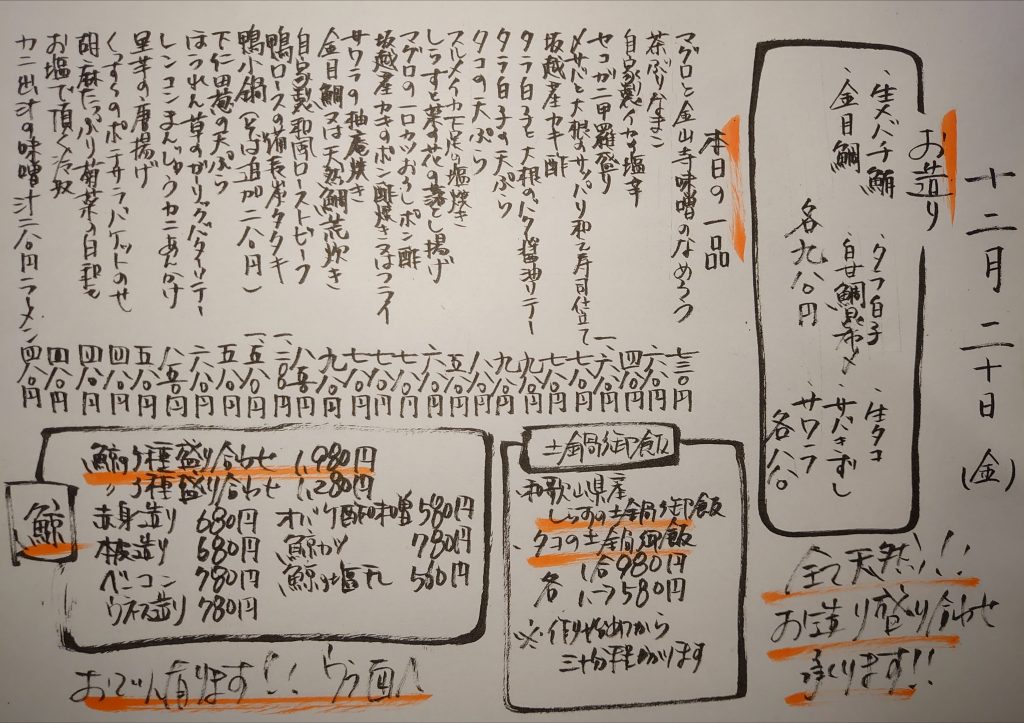 十二月二十日(金)
お造り
・生バチ鮪
・金目鯛
・タラ白子
・真鯛昆布〆
各九八〇円
・生タコ
・サバきずし
・サワラ
各八八〇
全て天然!!!
お造り盛り合わせ
承ります!!
本日の一品
マグロと金山寺味噌のなめろう 七三〇円
茶ぶりなまこ 六八〇円
自家製イカの塩辛 四八〇円
セコガニ甲羅盛り 一、六八〇円
〆サバと大根のサッパリ和え寿司仕立て 七八〇円
坂越産カキ酢 七八〇円
タラ白子と大根のバタ醤油ソテー 九八〇円
タラ白子の天ぷら 九八〇円
タコの天ぷら 八八〇円
スルメイカ下足の塩焼き 五八〇円
しらすと菜の花の落とし揚げ 六八〇円
マグロの一口カツおろしポン酢 七八〇円
坂越産カキのポン酢焼き又はフライ 七八〇円
サワラの柚庵焼き 七八〇円
金目鯛又は天然鯛荒炊き 九八〇円
自家製和風ローストビーフ 八八〇円
鴨ロースの備長炭タタキ 一、二八〇円
鴨小鍋(そば追加二八〇円) 一、五八〇円
下仁田葱の天ぷら 五八〇円
ほうれん草のガーリックバターソテー 六八〇円
レンコンまんじゅうカニあんかけ 八五〇円
里芋の唐揚げ 五八〇円
くんすきのポテサラバケットのせ 四八〇円
胡麻たっぷり菊菜の白和え 四八〇円
お塩で頂く冷奴 四八〇円
カニ出汁の味噌汁二八〇円ラーメン四八〇円
土鍋御飯
・和歌山県産
しらすの土鍋御飯
・タコの土鍋御飯
各 1合980円
1.5 1,580円
※作り始めから
三十分程かかります
鯨
鯨5種盛り合わせ 1,980円
〃 3種盛り合わせ 1,280円
赤身造り 680円
オバケ酢味噌 580円
本皮造り 680円
鯨カツ 780円
ベーコン 780円
鯨の塩干 500円
ウネス造り 780円
おでん有ります!! ウラ面へ